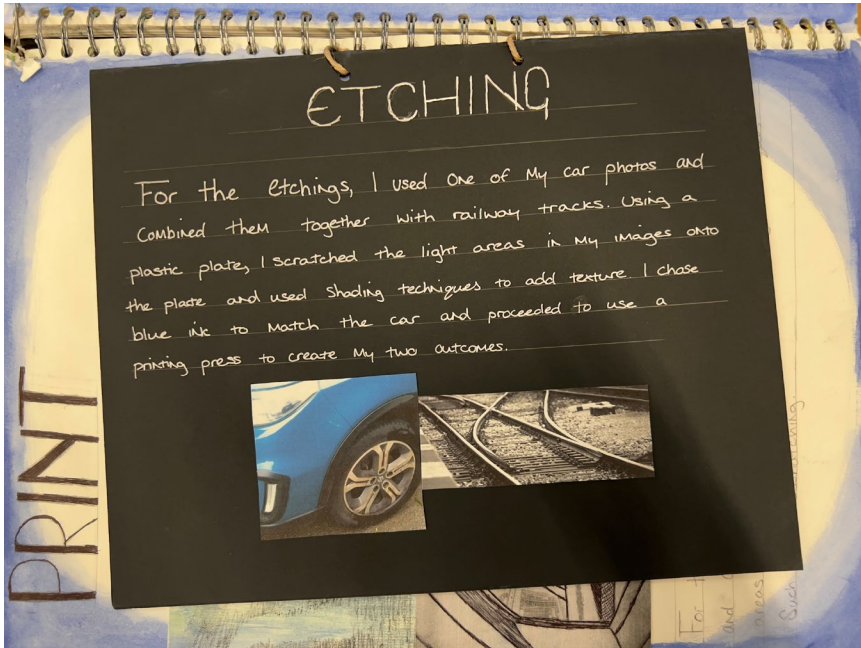 ETCHING
For the etchings, I used one of my car photos and
combined them together with railway tracks. Using a
plastic plate, I scratched the light areas in my images onto
the plate and used shading techniques to add texture. I chose
blue ink to match the car and proceeded to use a
printing press to create my two outcomes.
PRINT
For t
and
areas
Such